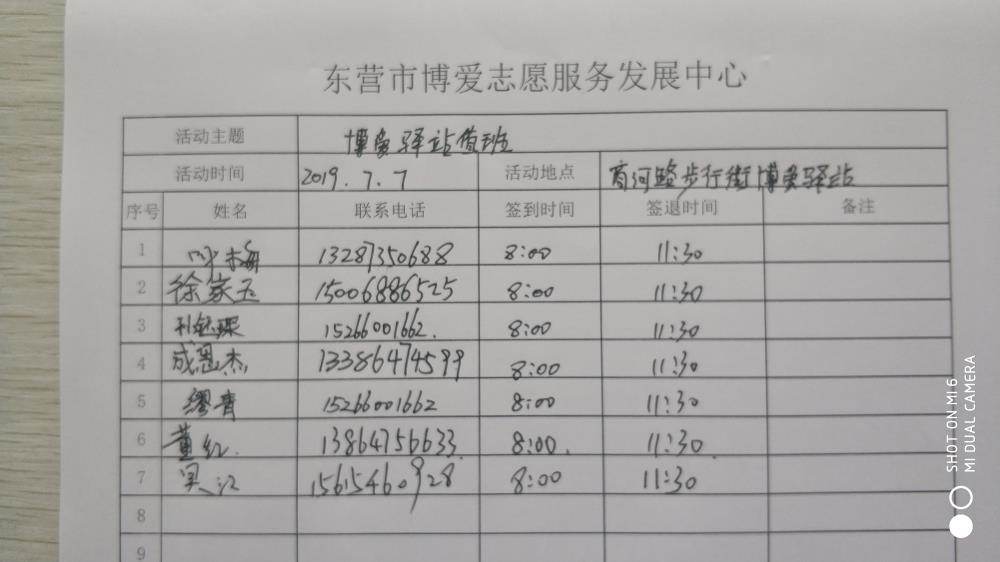 东营市博爱志愿服务发展中心
活动主题 博爱驿站值班
活动时间 2019.7.7 活动地点 商河路步行街博爱驿站
序号 姓名 联系电话 签到时间 签退时间 备注
1 叶梅 13287350688 8:00 11:30
2 徐家玉 15006886525 8:00 11:30
3 15266001662. 8:00 11:30
4 成恩杰 13386474599 8:00 11:30
5 缪青 15266001662 8:00 11:30
6 董红. 13864756633. 8:00. 11:30.
7 吴江 15615460928 8:00 11:30
8
9
SHOT ON MI 6
MI DUAL CAMERA